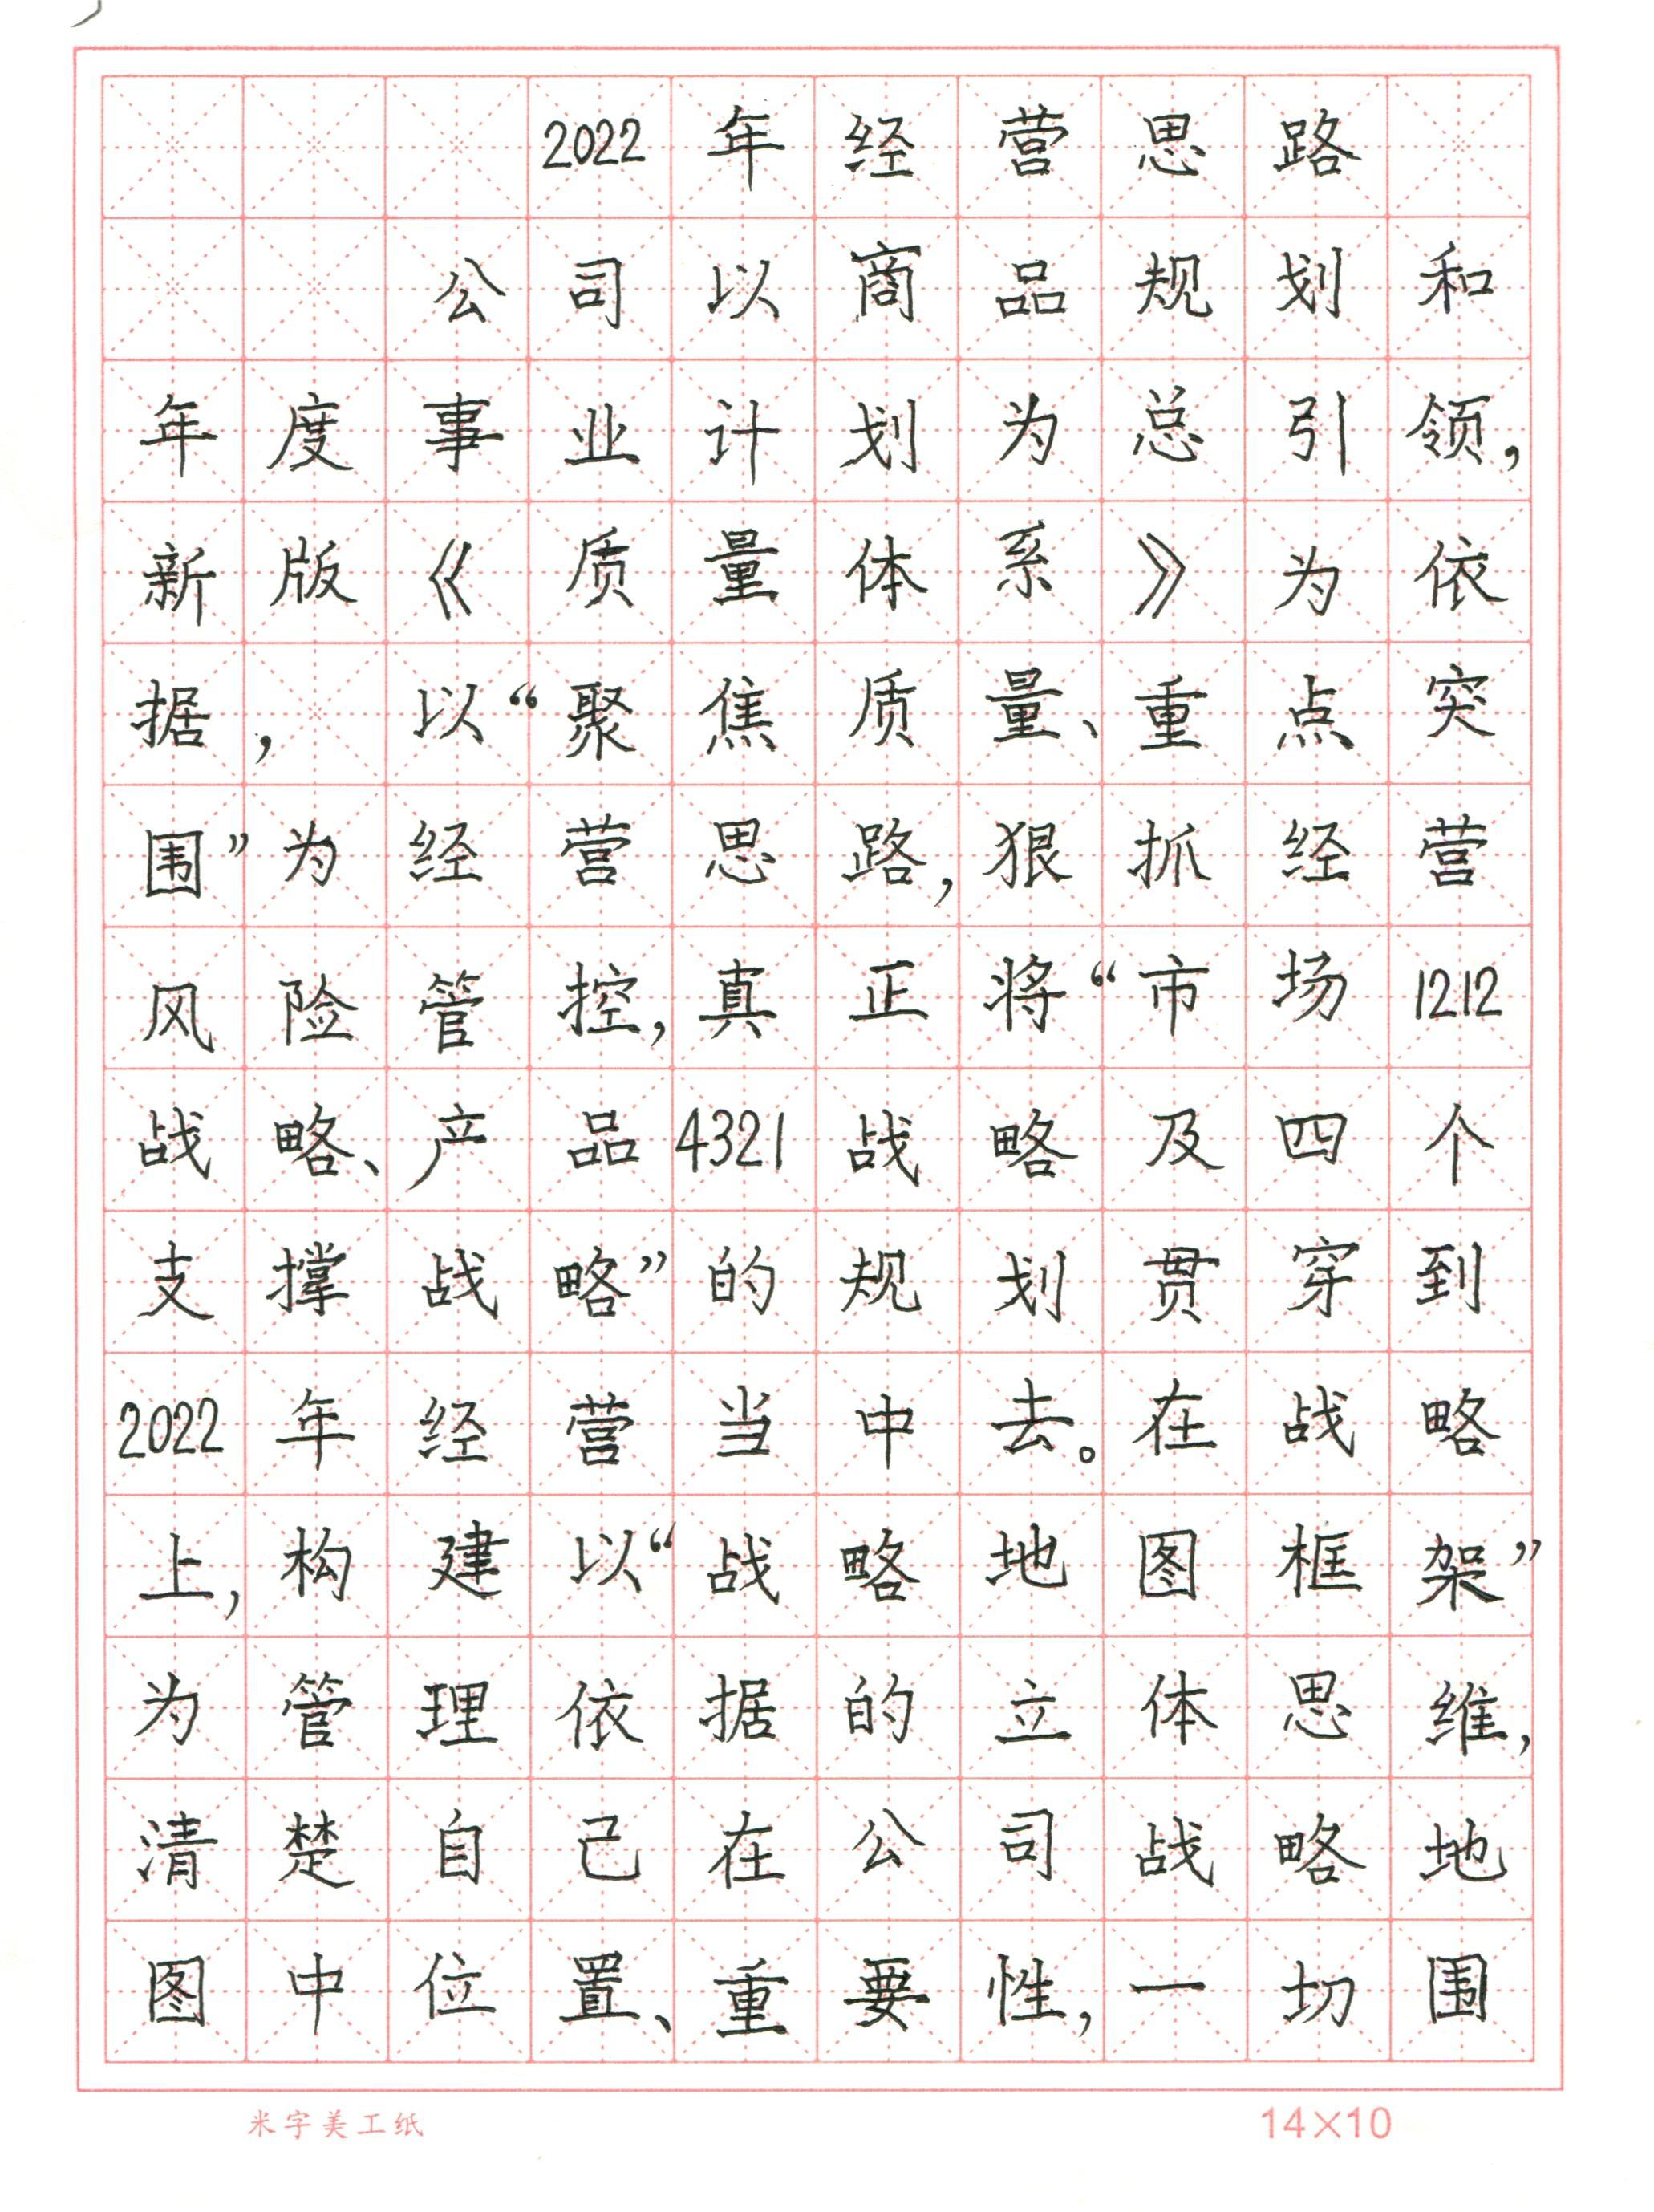 2022年经营思路
公司以商品规划和
年度事业计划为总引领，
新版《质量体系》为依
据，以“聚焦质量、重点突
围”为经营思路，狠抓经营
风险管控，真正将“市场1212
战略、产品4321战略及四个
支撑战略”的规划贯穿到
2022年经营当中去。在战略
上，构建以“战略地图框架”
为管理依据的立体思维，
清楚自己在公司战略地
图中位置、重要性，一切围
米字美工纸 14×10